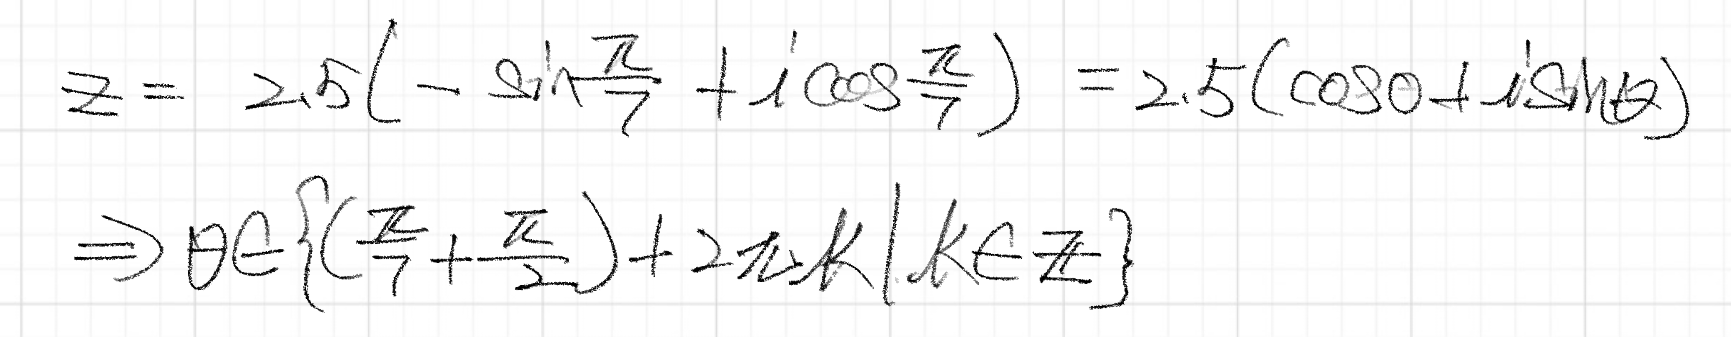 z = 2.5(- sin π/7 + i cos π/7) = 2.5(cosθ + i sinθ)
⇒ θ∈{(π/7 + π/2) + 2πk | k∈ℤ}